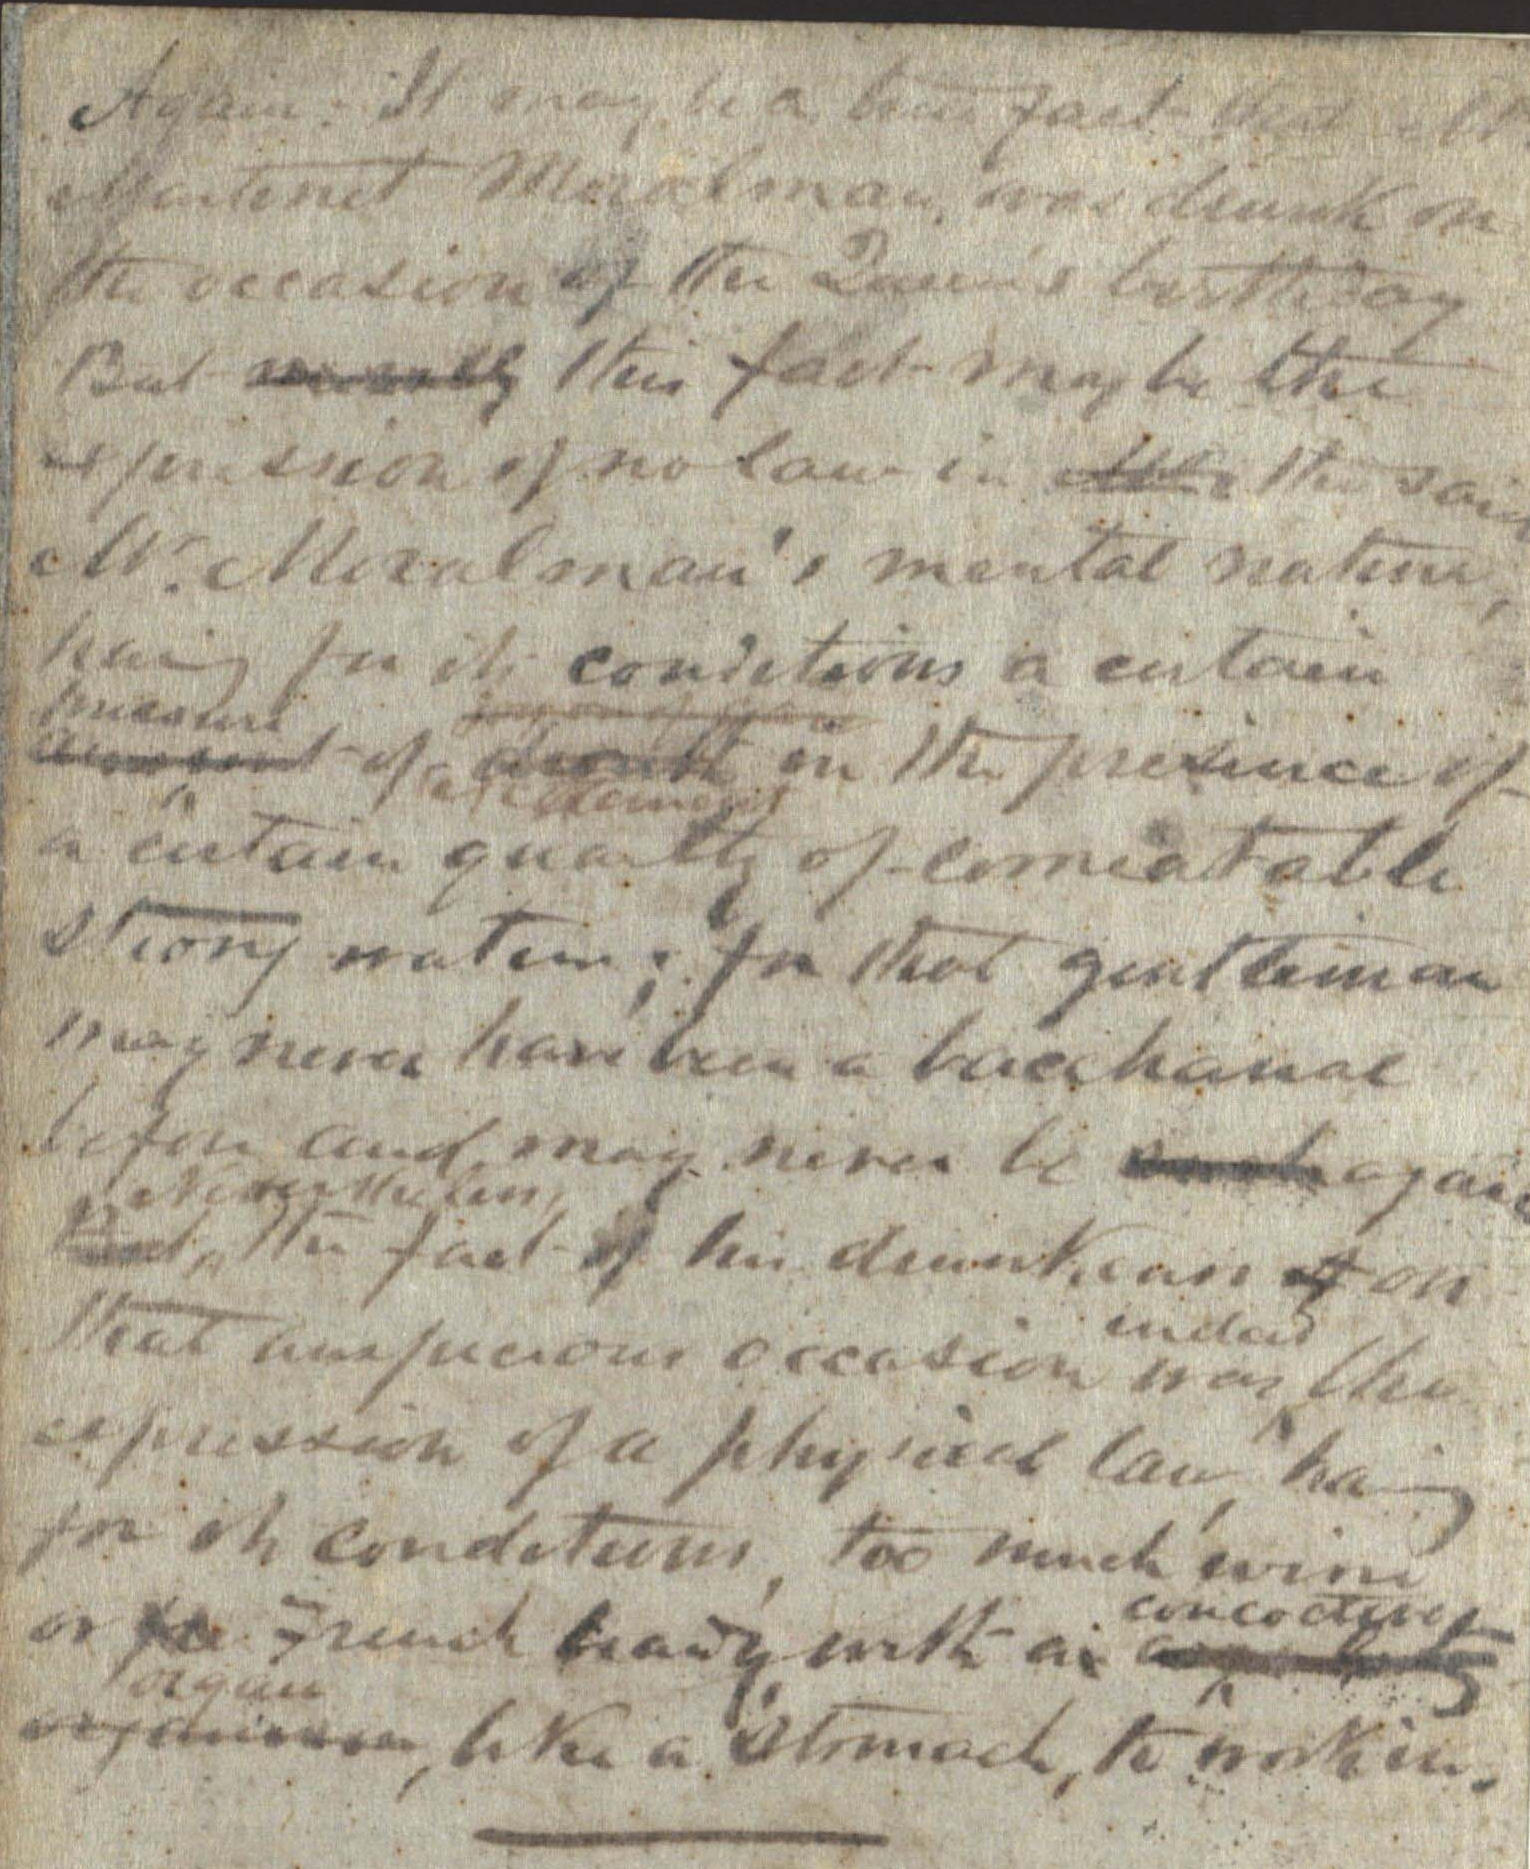 Again: It may be a true fact that Mr
Martinet Moralman, was drunk on
the occasion of the Queen's birthday
But this fact may be the
expression of no law in the the said
Mr. Moralman's mental nature,
having for its conditions a certain
measure
amount of drouth in the presence of
excitement
a certain quantity of comeatable
strong water; for that gentleman
may never have been a bacchanal
before and may never be such again
Nevertheless,
But, the fact of his drunkenness on
indeed
that auspicious occasion was the
expression of a physical law, having
for its conditions, too much wine
concoctive
or French brandy with a
organ
organism, like a stomach, to work in.